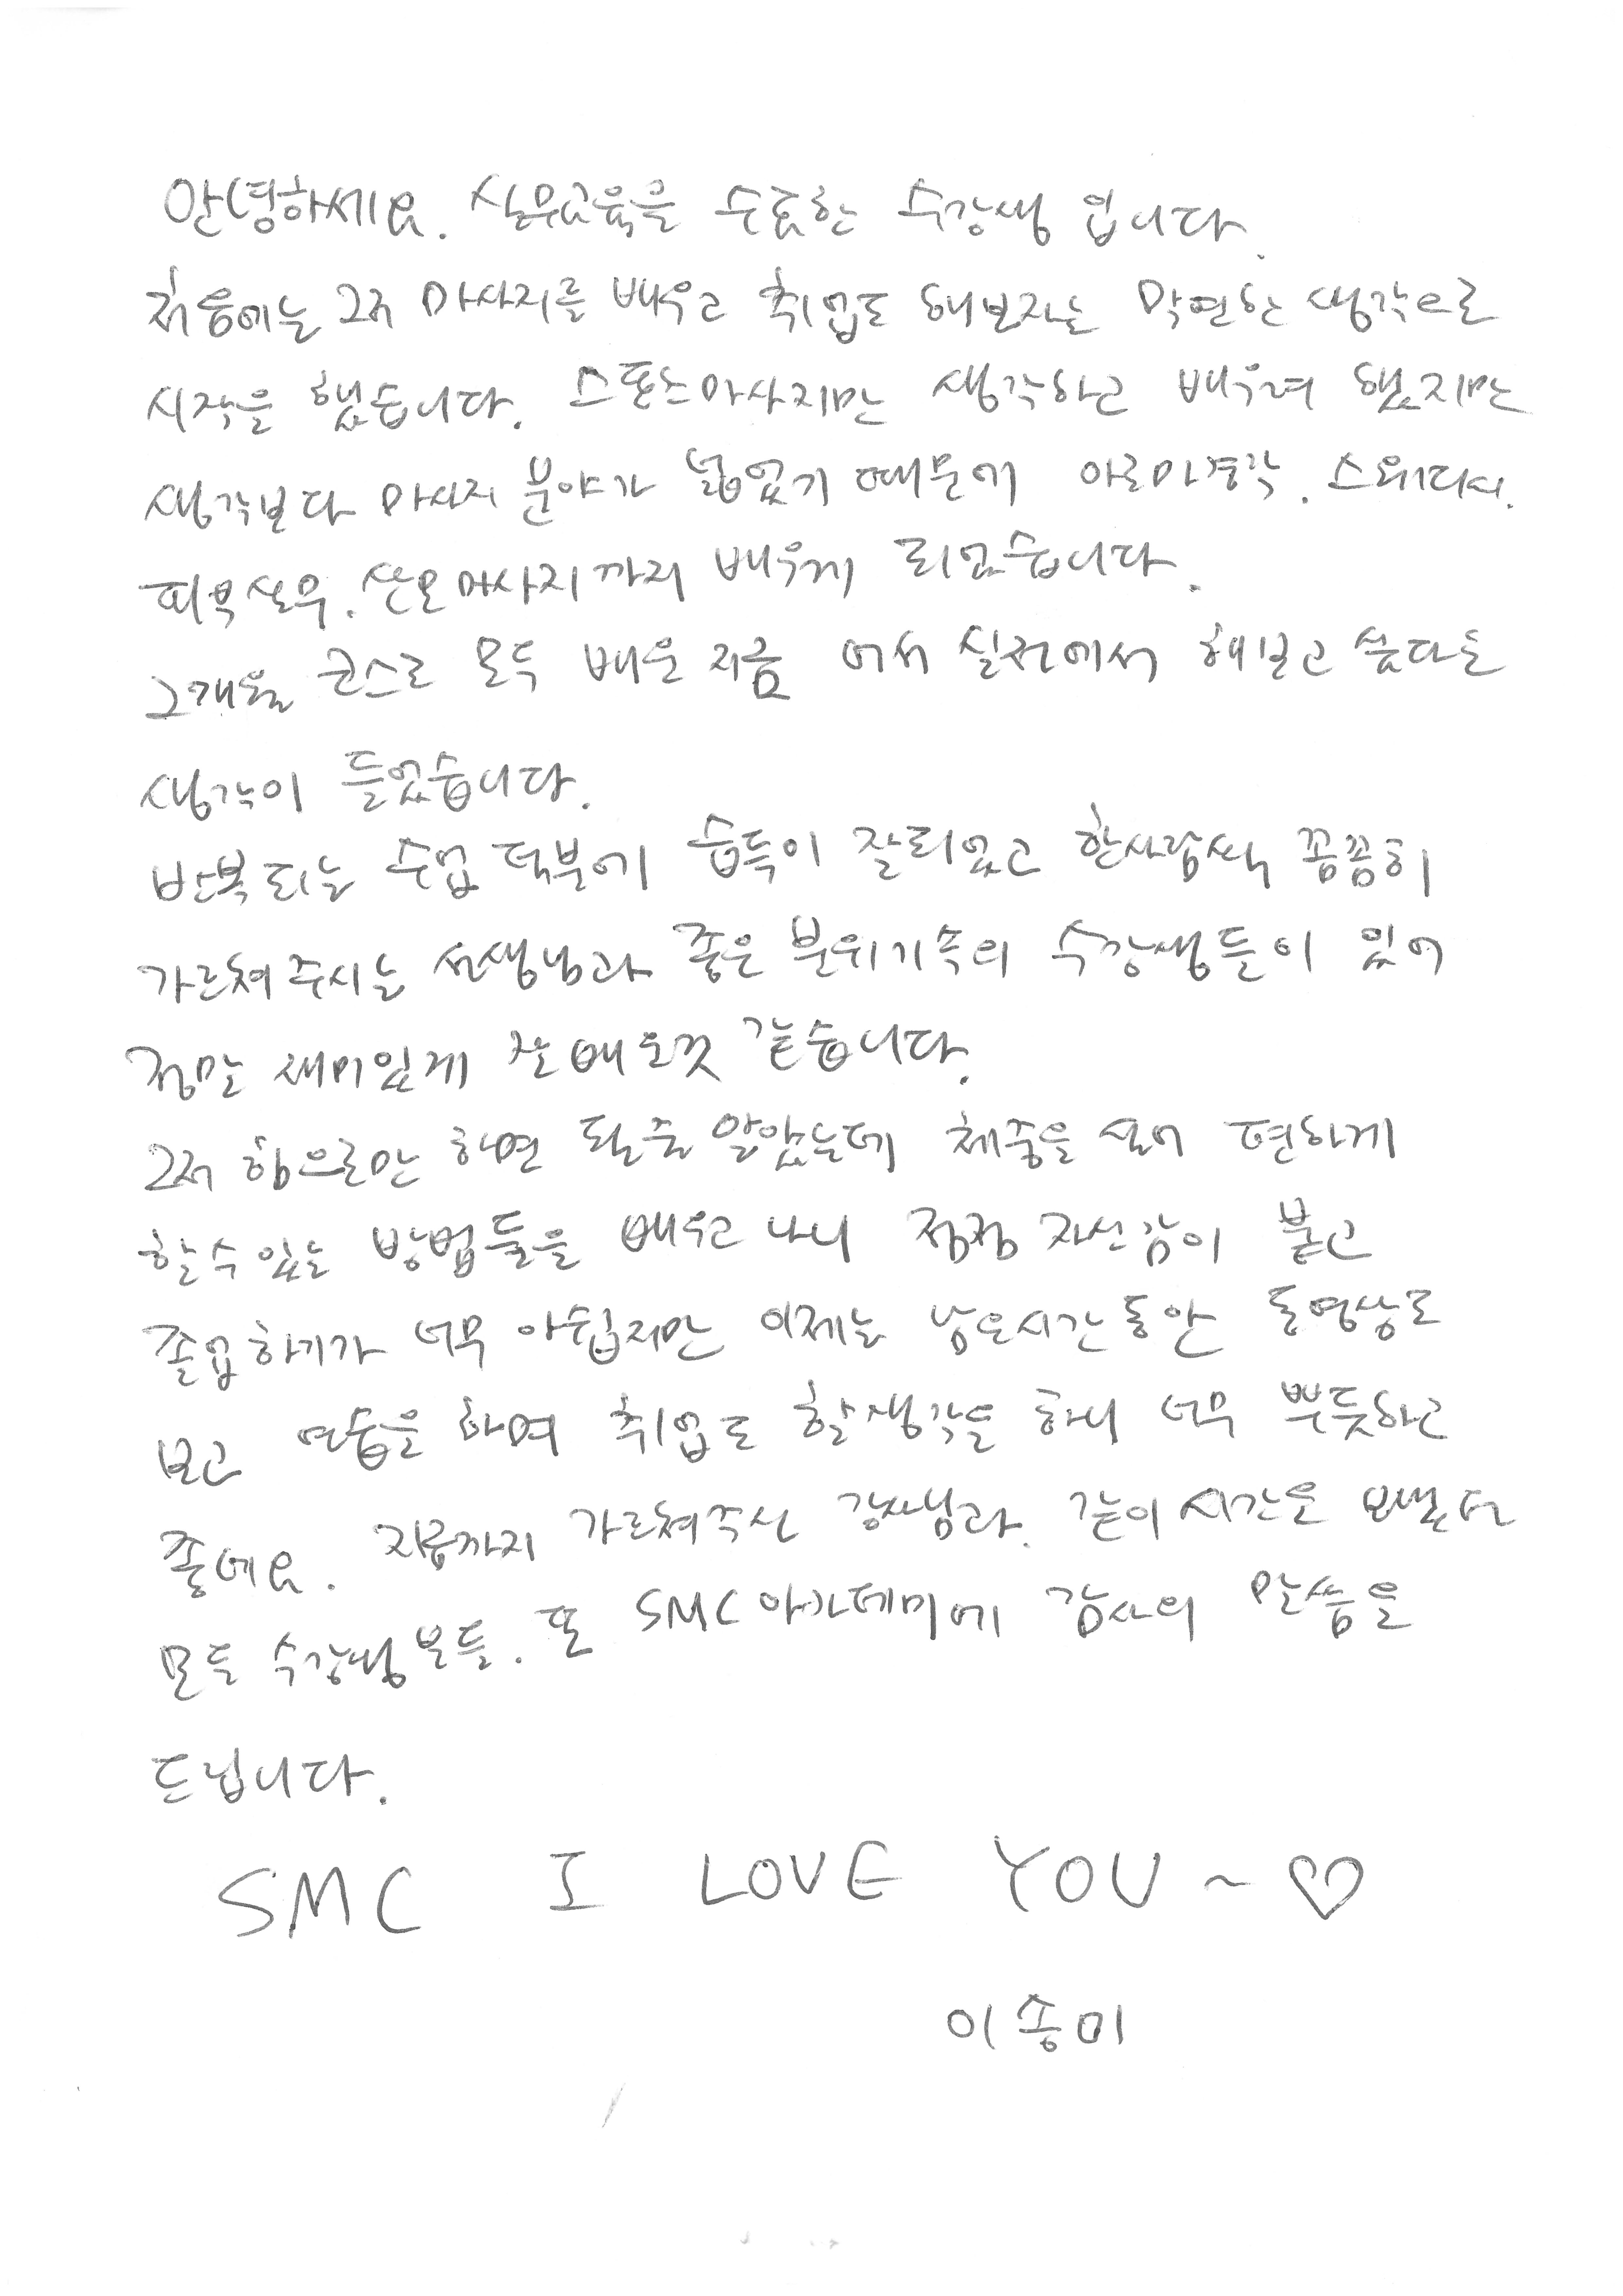 안녕하세요. 실무교육을 수료한 수강생 입니다.
처음에는 그저 마사지를 배우고 취업도 해보자는 막연한 생각으로
시작을 했습니다. 스포츠마사지만 생각하고 배우려 했지만
생각보다 마사지 분야가 넓었기 때문에 아로마경락. 스웨디시.
피부실무. 산모마사지까지 배우게 되었습니다.
2개월 코스로 모두 배운 지금 어서 실전에서 해보고 싶다는
생각이 들었습니다.
반복되는 수업 덕분에 습득이 잘되었고 한사람씩 꼼꼼히
가르쳐주시는 선생님과 좋은 분위기속의 수강생들이 있어
정말 재미있게 잘 배운것 같습니다.
그저 힘으로만 하면 될줄 알았는데 체중을 실어 편하게
할수있는 방법들을 배우고 나니 점점 자신감이 붙고
졸업하기가 너무 아쉽지만 이제는 남은시간동안 동영상도
보고 연습을 하며 취업도 할생각을 하니 너무 뿌듯하고
좋네요. 지금까지 가르쳐주신 강사님과. 같이 시간을 보냈던
모든 수강생분들. 또 SMC아카데미에 감사의 말씀을
드립니다.
SMC I LOVE YOU ~ ♡
이송미